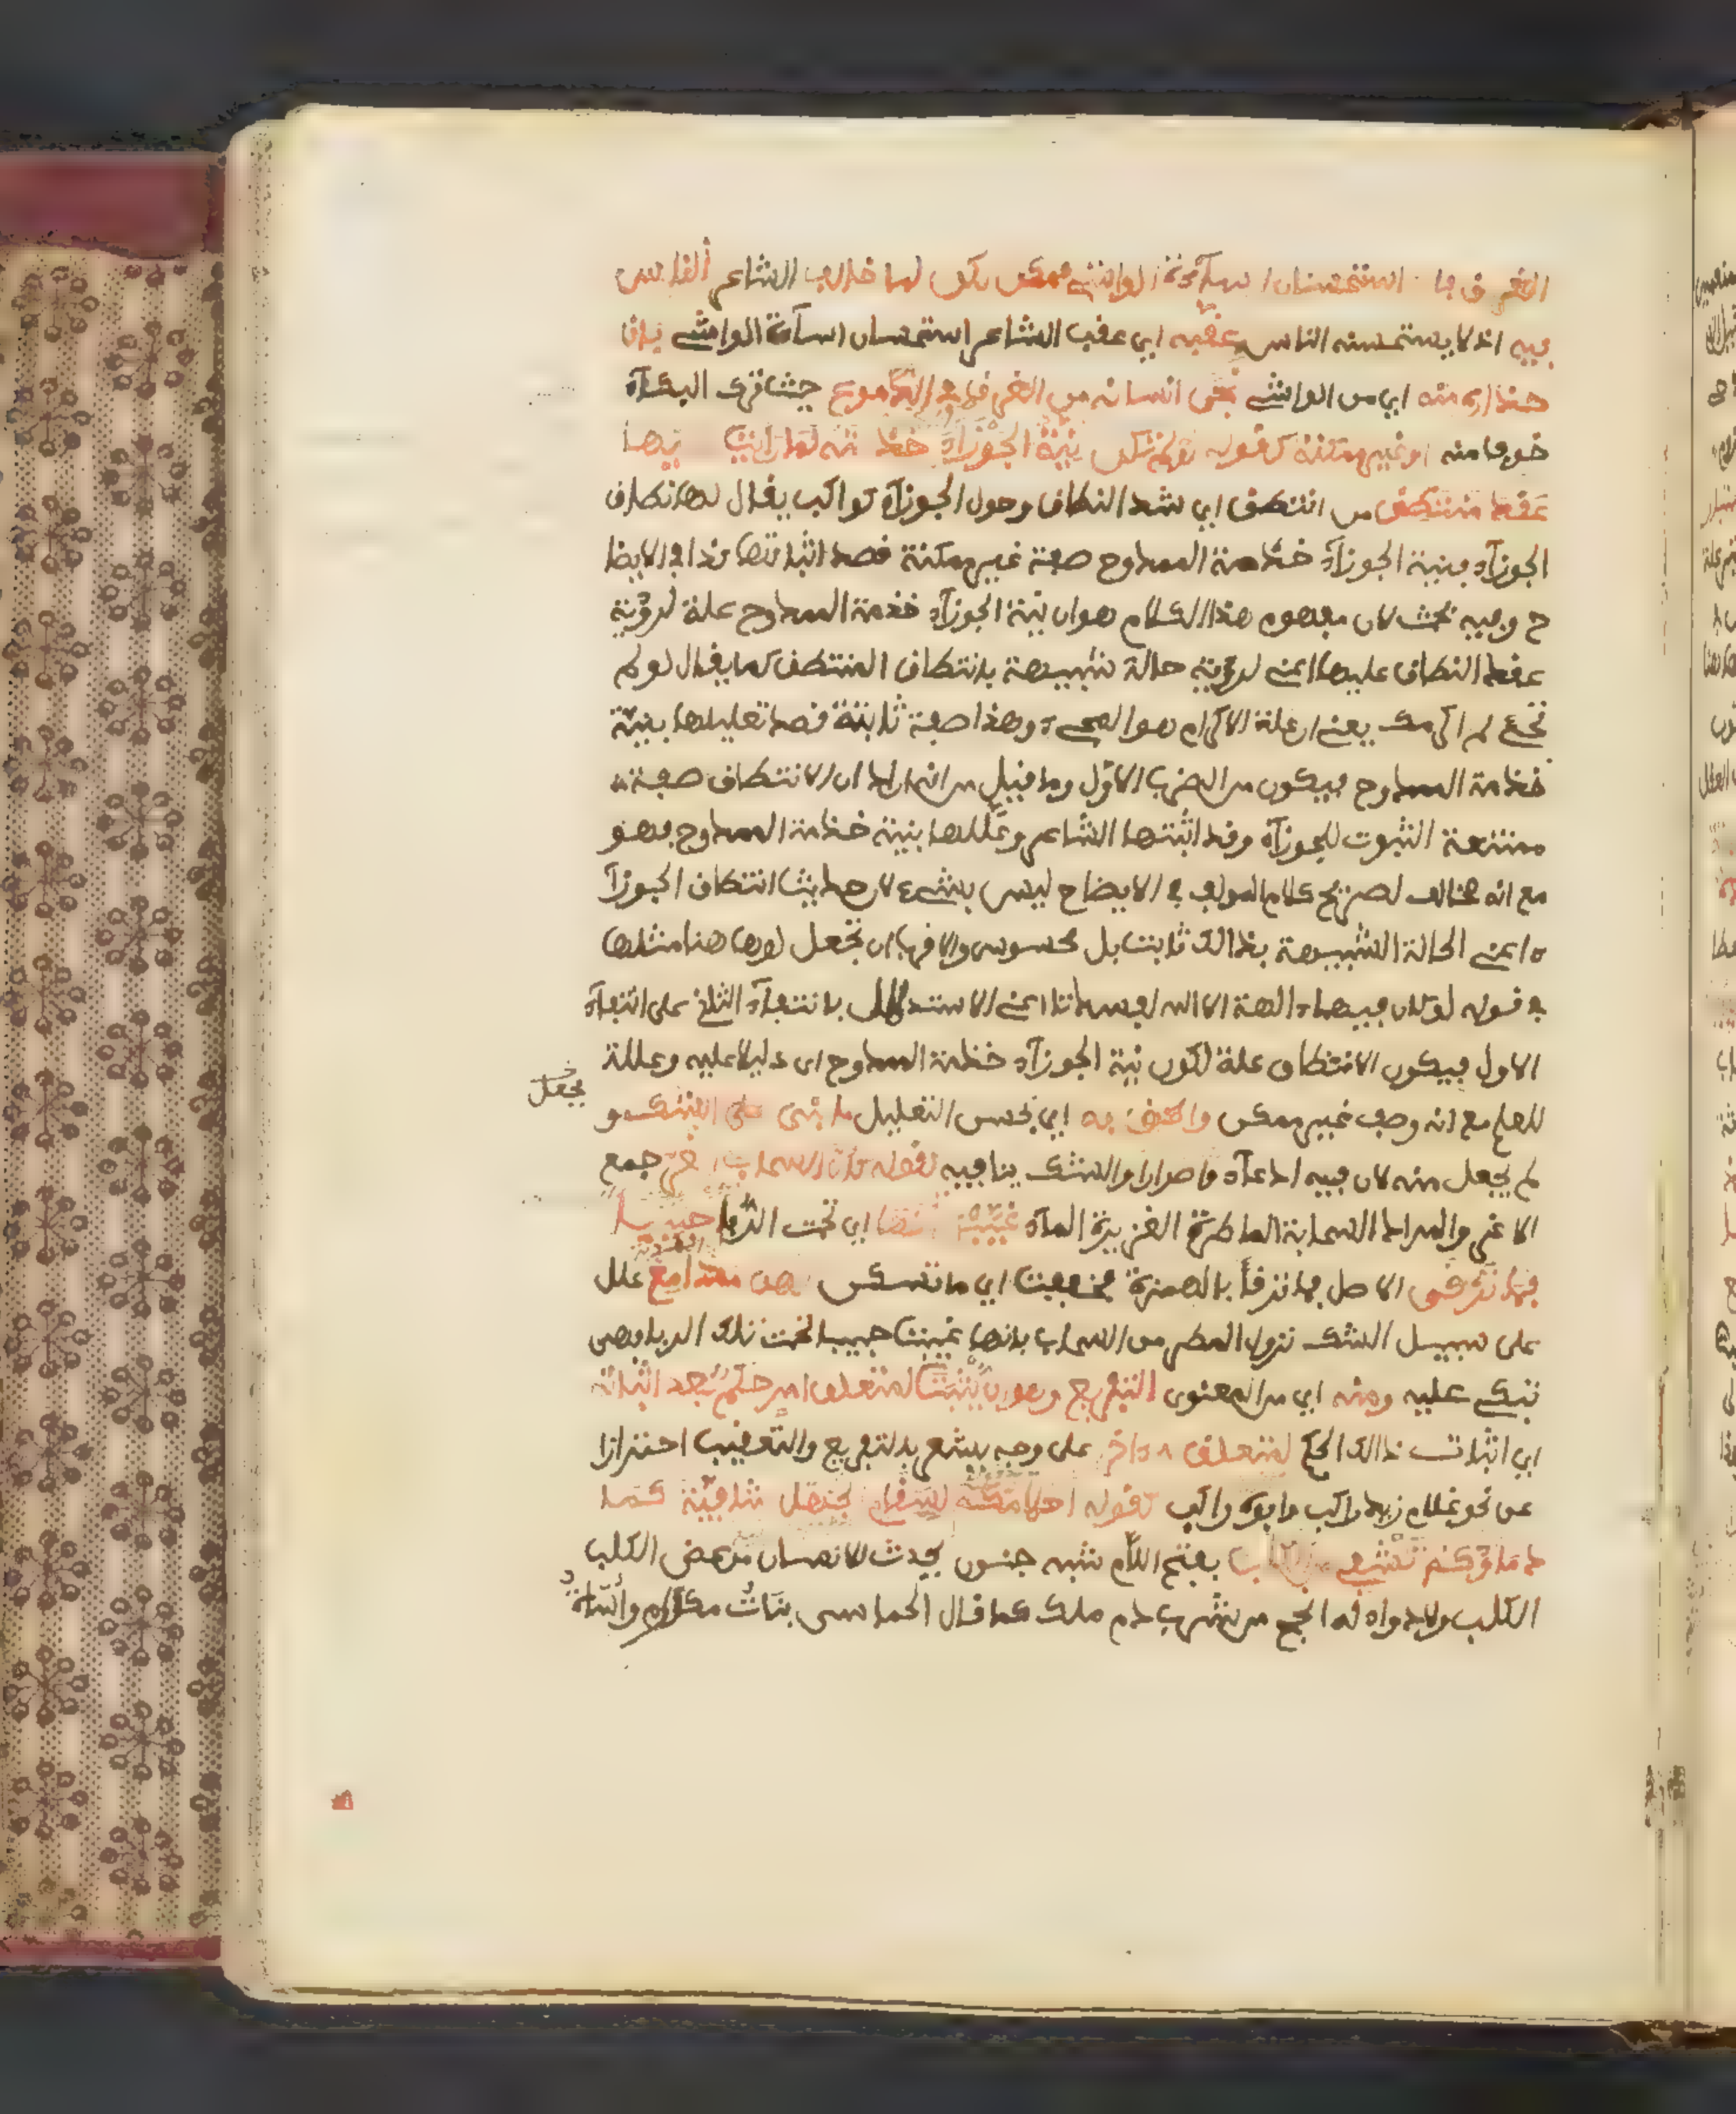 الغرق فا استحسان اساءة الواشي ممكن لكن لما خالف الشاعر الناس
فيه اذ لا يستحسنه الناس عقبه اي عقب الشاعر استحسان اساءة الواشي بان
حذاره منه اي من الواشي نجى انسانه من الغرق في الدموع حيث ترك البكاء
خوفا منه او غير ممكنة كقوله لو لم تكن نية الجوزاء خدمته لما رايت عليها
عقد منتطق من انتطق اي شد النطاق وحول الجوزاء كواكب يقال لها نطاق
الجوزاء فنية الجوزاء خدمة الممدوح صفة غير ممكنة قصد اثباتها كذا في الايضا
ح وفيه بحث لان مفهوم هذا الكلام هو ان نية الجوزاء خدمة الممدوح علة لرؤية
عقد النطاق عليها اعني لرؤية حالة شبيهة بانتطاق المنتطق كما يقال لو لم
تجئ لم اكرمك يعني ان علة الاكرام هو المجيء وهذا صفة ثابتة قصد تعليلها بنية
خدمة الممدوح فيكون من الضرب الاول وما قيل من انه اراد ان الانتطاق صفة
ممتنعة الثبوت للجوزاء وقد اثبتها الشاعر وعللها بنية خدمة الممدوح فهو
مع انه مخالف لصريح كلام المولف في الايضاح ليس بشيء لان حديث انتطاق الجوزا
ء اعني الحالة الشبيهة بذالك ثابت بل محسوس والاقرب ان تجعل لو ها هنا مثلها
في قوله لو كان فيهما ءالهة الا الله لفسدتا اعني الاستدلال بانتفاء الثاني على انتفاء
الاول فيكون الانتطاق علة لكون نية الجوزاء خدمة الممدوح اي دليلا عليه وعلة
للعلم مع انه وصف غير ممكن والحق به اي بحسن التعليل ما بني على الشك و
يجعل
لم يجعل منه لان فيه ادعاء واصرارا والشك ينافيه كقوله كان السحاب الغر جمع
الاغر والمراد السحابة الماطرة الغزيرة الماء غيبن تحتها اي تحت الربا حبيبا
فما ترقى الاصل فما ترقأ بالهمزة فخففت اي ما تسكن لهن مدامع علل
على سبيل الشك نزول المطر من السحاب بانها غيبت حبيبا تحت تلك الربا فهي
تبكي عليه ومنه اي من المعنوي التفريع وهو ان يثبت لمتعلق امر حكم بعد اثباته
اي اثبات ذالك الحكم لمتعلق ءاخر على وجه يشعر بالتفريع والتعقيب احترازا
عن نحو غلام زيد راكب وابوه راكب كقوله احلامكم لسقام الجهل شافية كما
دماؤكم تشفي من الكلب بفتح اللام شبه جنون يحدث للانسان من عض الكلب
الكلب ولا دواء له انجع من شرب دم ملك كما قال الحماسي بناة مكارم واساة